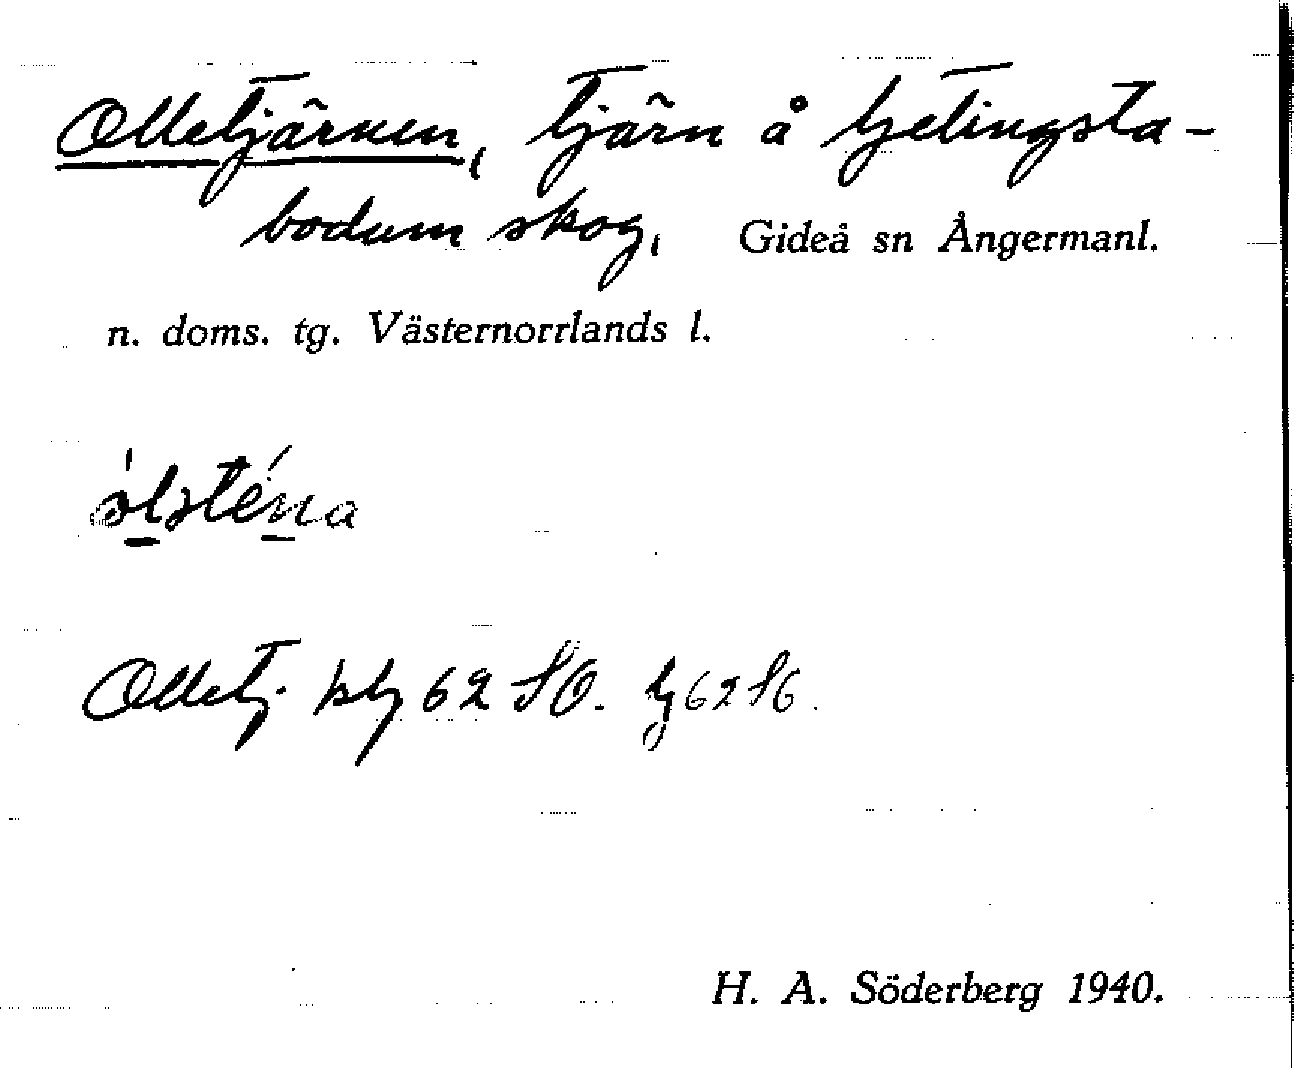 Olletjärnen, tjärn å Getingsta-
bodum skog, Gideå sn Ångermanl.
n. doms. tg. Västernorrlands l.
Olletj. 62 SO. 62 SO.
H. A. Söderberg 1940.